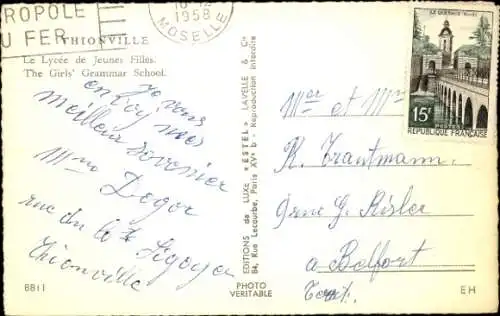 ROPOLE
U FER
1958
MOSELLE
THIONVILLE
Le Lycée de Jeunes Filles.
The Girls' Grammar School.
Je vous
envoy mes
meilleur souvenier
Mme Degor
rue du
Thionville
8811
PHOTO
VERITABLE
EDITIONS de LUXE "ESTEL" LAVELLE & Cie
84, Rue Lecourbe, Paris XVe b - Reproduction interdite
LE QUESNOY
15F
POSTES
REPUBLIQUE FRANÇAISE
Mor et Mme
R. Trautmann
9 rue G. Risler
a Belfort
Terrt.
EH